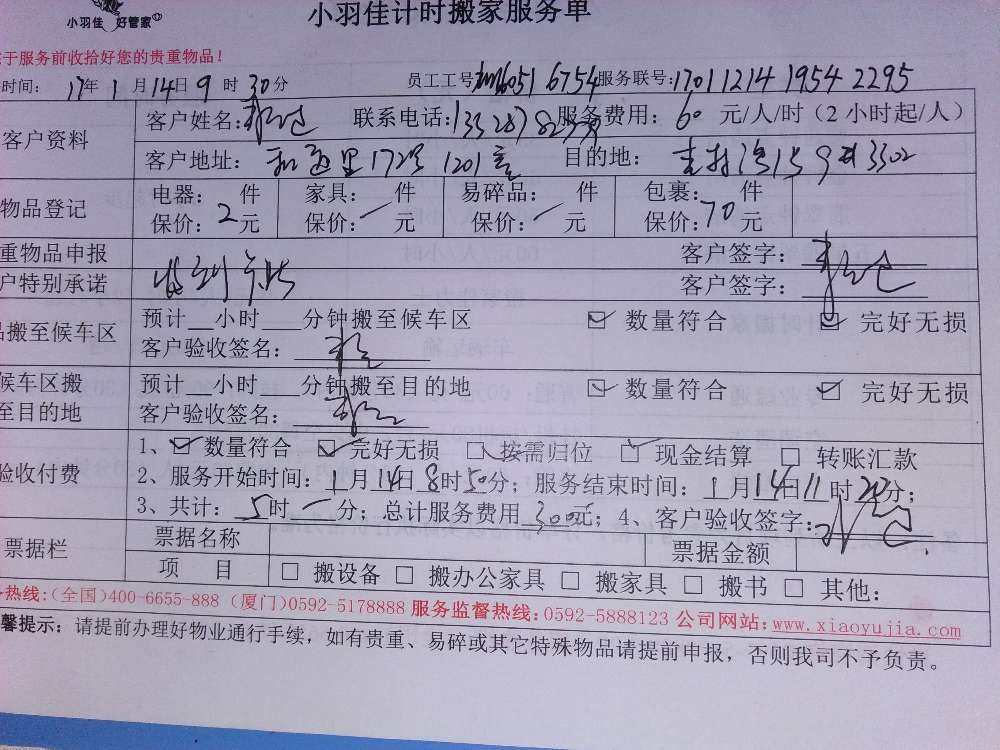 小羽佳 好管家
小羽佳计时搬家服务单
于服务前收拾好您的贵重物品!
时间: 17年 1 月 14日 9 时 30分 员工工号: 6051 6754 服务联号: 1701 1214 1954 2295
客户资料 客户姓名: 联系电话: 服务费用: 60 元/人/时(2小时起/人)
客户地址: 172号 1201室 目的地: 3302
物品登记 电器: 件 家具: 件 易碎品: 件 包裹: 件
保价: 2 元 保价: 一 元 保价: 一 元 保价: 70 元
重物品申报 客户签字:
户特别承诺 客户签字:
品搬至候车区 预计 小时 分钟搬至候车区 ☑ 数量符合 ☑ 完好无损
客户验收签名:
候车区搬 预计 小时 分钟搬至目的地 ☑ 数量符合 ☑ 完好无损
至目的地 客户验收签名:
验收付费 1、☑ 数量符合 ☑ 完好无损 □ 按需归位 ☑ 现金结算 □ 转账汇款
2、服务开始时间: 1 月 14日 8时50分; 服务结束时间: 1 月 14日 11 时20分;
3、共计: 5 时 一 分; 总计服务费用 300元; 4、客户验收签字:
票据栏 票据名称 票据金额
项 目 □ 搬设备 □ 搬办公家具 □ 搬家具 □ 搬书 □ 其他:
热线:(全国)400-6655-888 (厦门)0592-5178888 服务监督热线:0592-5888123 公司网站:www.xiaoyujia.com
馨提示: 请提前办理好物业通行手续, 如有贵重、易碎或其它特殊物品请提前申报, 否则我司不予负责。